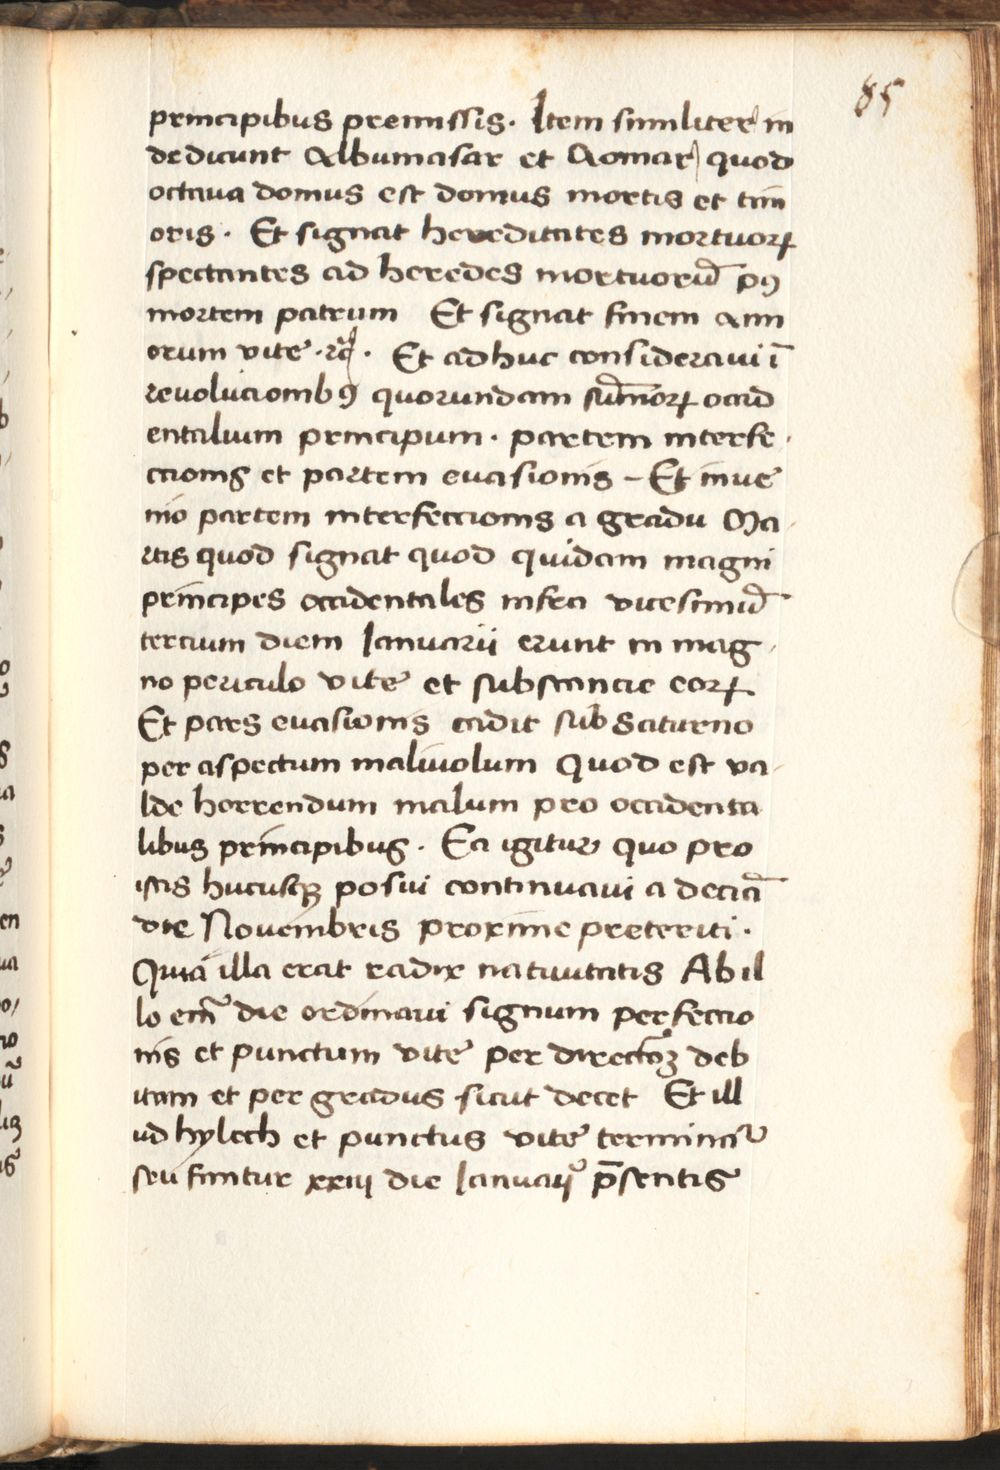 85
principibus premissis. Item similiter in
de dicunt Albumasar et Aomar quod
octava domus est domus mortis et tim
oris. Et signat hereditates mortuoꝝ
spectantes ad heredes mortuorū pꝯ
mortem patrum Et signat finem ann
orum vite . rc̄ . Et adhuc consideraui ī
reuolucionibꝯ quorundam sum̄orꝝ occid
entalium principum. partem interfe
ccionis et partem euasionis - Et inue
nio partem interfeccionis a gradu Ma
rtis quod signat quod quidam magni
principes occidentales infra vicesimū
tercium diem Ianuarii erunt in mag
no periculo vite et substancie eorꝝ
Et pars euasionis cadit sub Saturno
per aspectum maliuolum Quod est va
lde horrendum malum pro occidenta
libus principibus. Ea igitur quo pro
istis hucusqꝫ posui continuaui a deciā
die Nouembris proxime preteriti.
Quia illa erat radix natiuitatis Ab il
lo em̄ die ordinaui signum perfeccio
nis et punctum vite per directoꝫ deb
itam et per gradus sicut decet Et ill
ud hylech et punctus vite terminat᷑
seu finitur xxiii die Ianuarii p̄sentis